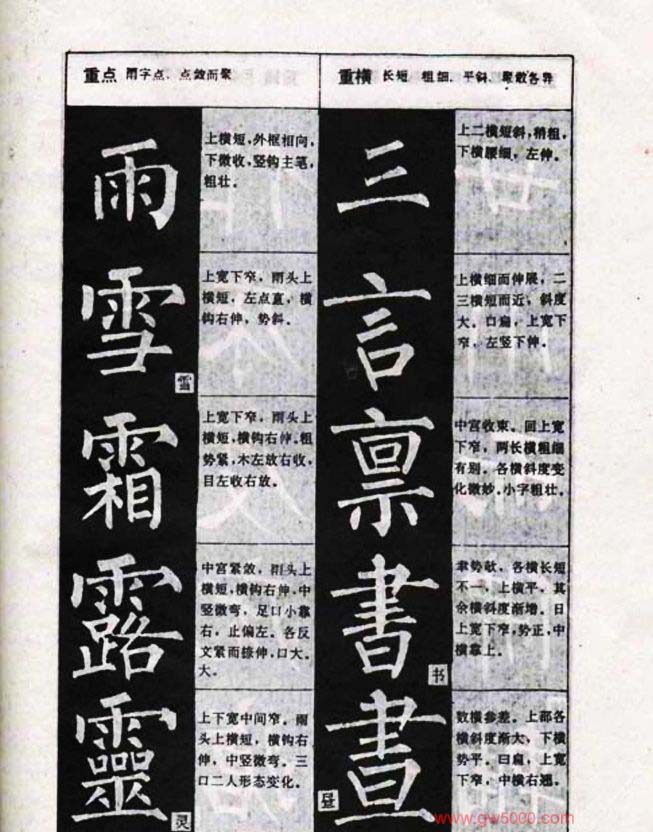 重点 雨字点、点敛而聚
雨
上横短,外框相向,
下微收,竖钩主笔,
粗壮。
雪
雪
上宽下窄,雨头上
横短,左点直,横
钩右伸,势斜。
霜
上宽下窄,雨头上
横短,横钩右伸。粗
势紧,木左放右收,
目左收右放。
露
中宫紧敛,雨头上
横短,横钩右伸,中
竖微弯,足口小靠
右,止偏左。各反
文紧而捺伸,口大。
大。
靈
灵
上下宽中间窄。雨
头上横短,横钩右
伸,中竖微弯。三
口二人形态变化。
重横 长短、粗细、平斜、聚散各异
三
上二横短斜,稍粗,
下横腰细,左伸。
言
上横细而伸展,二
三横短而近,斜度
大。口扁,上宽下
窄,左竖下伸。
禀
中宫收束。回上宽
下窄,两长横粗细
有别。各横斜度变
化微妙。小字粗壮。
書
书
聿势欹,各横长短
不一,上横平,其
余横斜度渐增。日
上宽下窄,势正,中
横靠上。
晝
昼
数横参差。上部各
横斜度渐大,下横
势平。曰扁,上宽
下窄,中横右翘。
www.gw5000.com